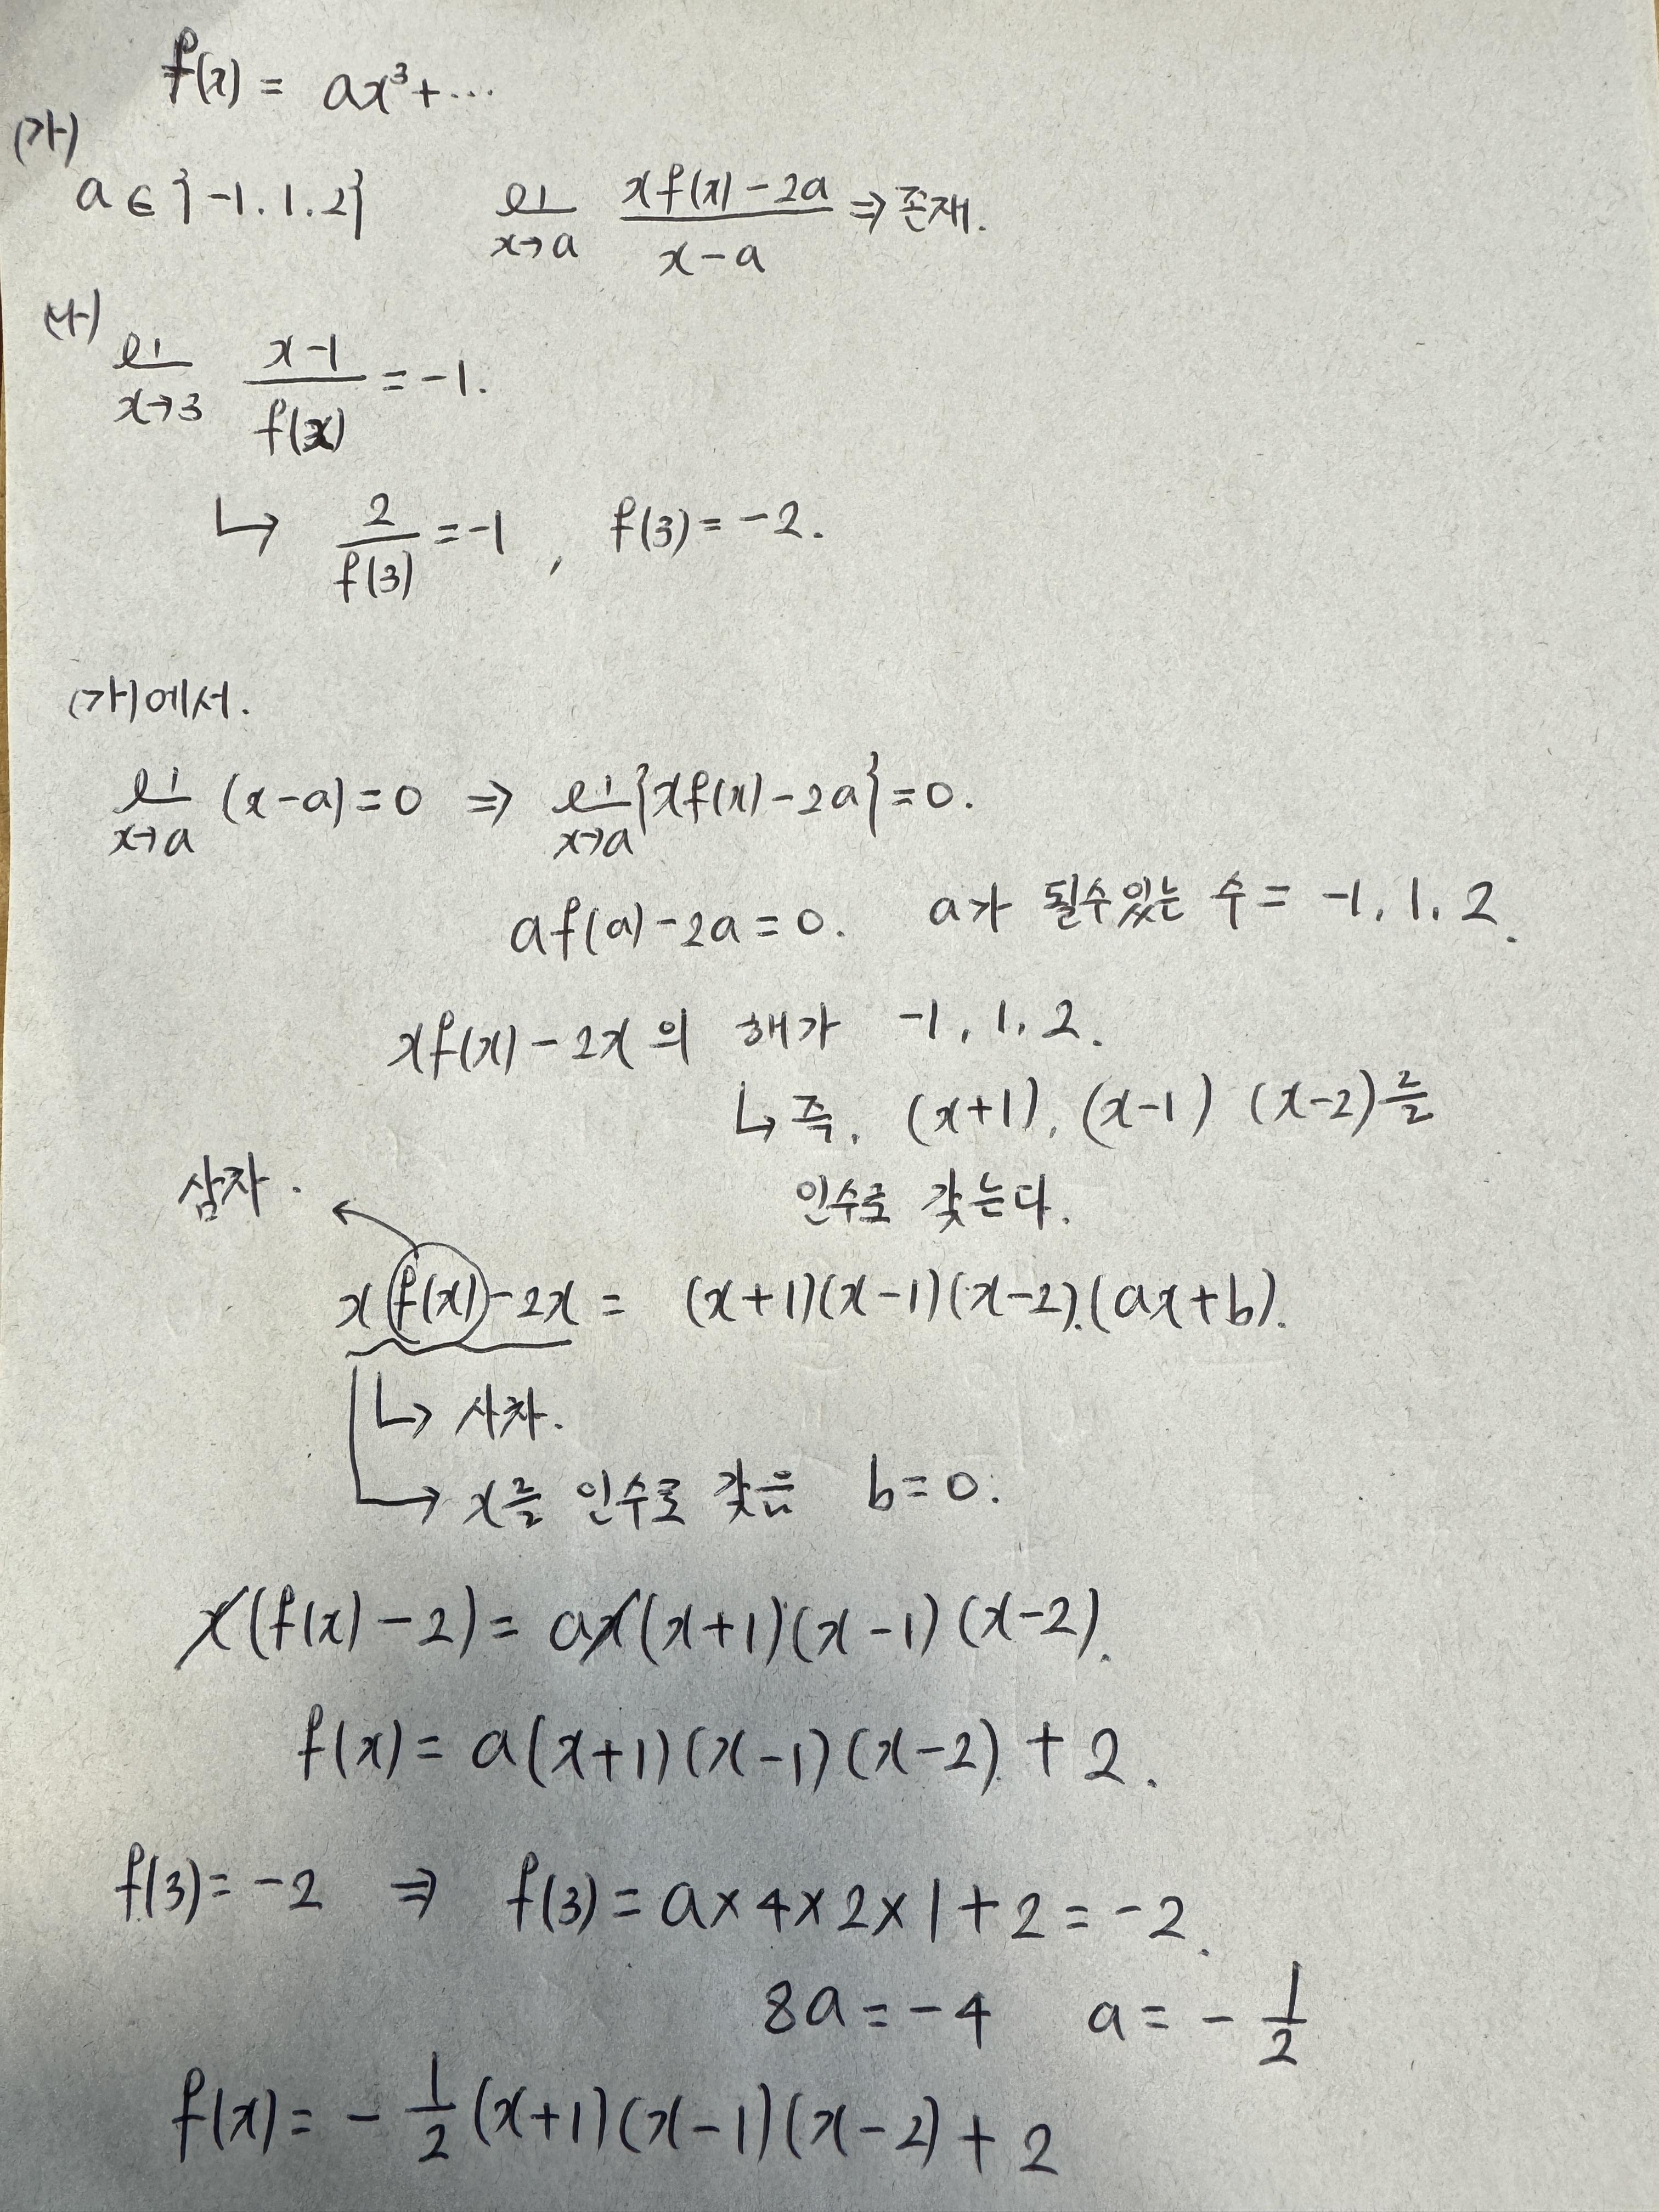 f(x) = ax³+⋯
(가)
a ∈ {-1. 1. 2} lim x→a (xf(x)-2a)/(x-a) ⇒ 존재.
(나)
lim x→3 (x-1)/f(x) = -1.
↳ 2/f(3) = -1 , f(3) = -2.
(가)에서.
lim x→a (x-a)=0 ⇒ lim x→a {xf(x)-2a}=0.
af(a)-2a=0. a가 될수있는 수= -1, 1, 2.
xf(x)-2x의 해가 -1, 1, 2.
↳ 즉, (x+1), (x-1) (x-2)를
인수로 갖는다.
삼차.
xf(x)-2x = (x+1)(x-1)(x-2).(ax+b).
↳ 사차.
→ x를 인수로 갖음 b=0.
x(f(x)-2) = ax(x+1)(x-1)(x-2).
f(x) = a(x+1)(x-1)(x-2)+2.
f(3)=-2 ⇒ f(3)=a×4×2×1+2=-2.
8a=-4 a=-1/2
f(x)=-1/2(x+1)(x-1)(x-2)+2